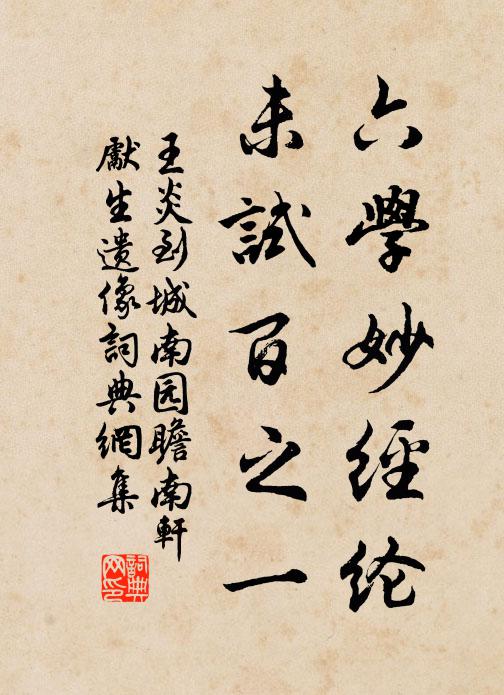 六學妙經纶
未試百之一
王炎到城南园瞻南軒
獻生遺像詞典網集
詞典
网印